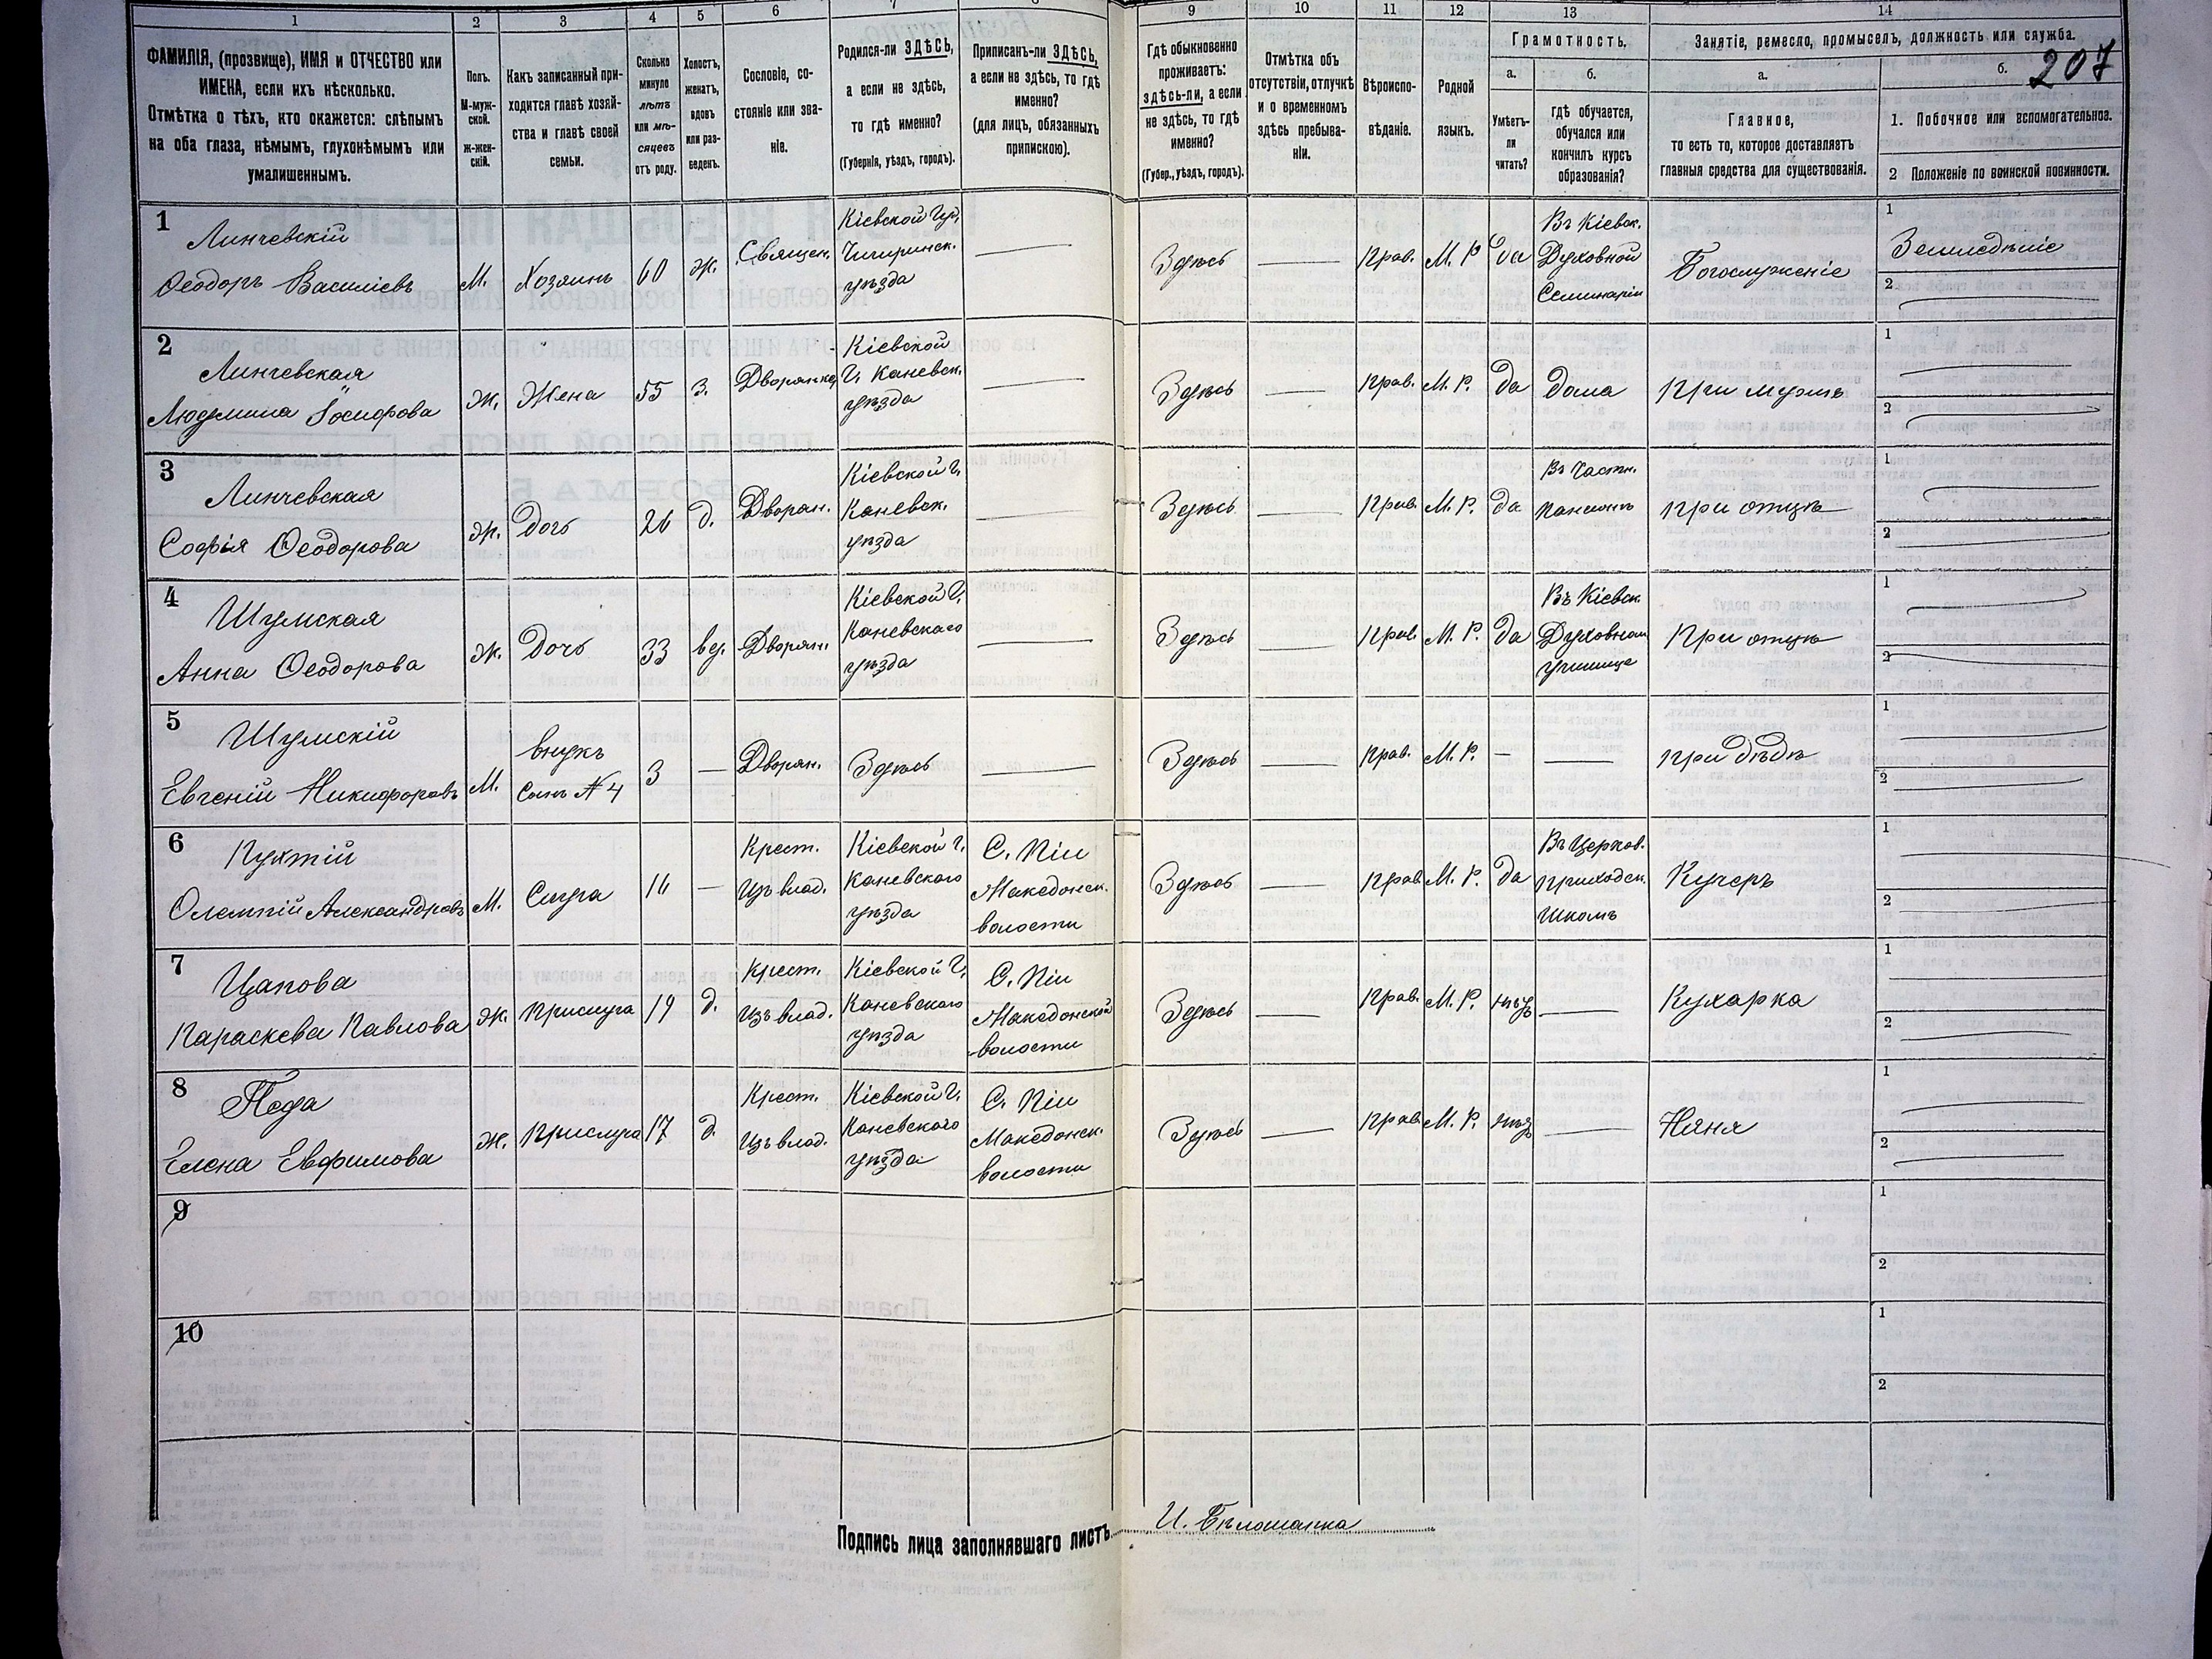 1 2 3 4 5 6 7 8 9 10 11 12 13 14
ФАМИЛІЯ, (прозвище), ИМЯ и ОТЧЕСТВО или
ИМЕНА, если ихъ нѣсколько.
Отмѣтка о тѣхъ, кто окажется: слѣпымъ
на оба глаза, нѣмымъ, глухонѣмымъ или
умалишеннымъ.
Полъ.
М-муж-
ской.
ж-жен-
скій.
Какъ записанный при-
ходится главѣ хозяй-
ства и главѣ своей
семьи.
Сколько
минуло
лѣтъ
или мѣ-
сяцевъ
отъ роду.
Холостъ,
женатъ,
вдовъ
или раз-
веденъ.
Сословіе, со-
стояніе или зва-
ніе.
Родился-ли ЗДѢСЬ,
а если не здѣсь,
то гдѣ именно?
(Губернія, уѣздъ, городъ).
Приписанъ-ли ЗДѢСЬ,
а если не здѣсь, то гдѣ
именно?
(для лицъ, обязанныхъ
припискою).
Гдѣ обыкновенно
проживаетъ:
здѣсь-ли, а если
не здѣсь, то гдѣ
именно?
(Губер., уѣздъ, городъ).
Отмѣтка объ
отсутствіи, отлучкѣ
и о временномъ
здѣсь пребыва-
ніи.
Вѣроиспо-
вѣданіе.
Родной
языкъ.
Грамотность.
а.
Умѣетъ-
ли
читать?
б.
гдѣ обучается,
обучался или
кончилъ курсъ
образованія?
Занятіе, ремесло, промыселъ, должность или служба.
а.
Главное,
то есть то, которое доставляетъ
главныя средства для существованія.
б.
207
1. Побочное или вспомогательное.
2 Положеніе по воинской повинности.
1
Линчевскій
Ѳеодоръ Василіевъ
М.
Хозяинъ
60
ж.
Священ.
Кіевской Гур.
Чигиринск.
уѣзда
Здѣсь
Прав.
М. Р
да
Въ Кіевск.
Духовной
Семинаріи
Богослуженіе
1
Земледѣліе
2
2
Линчевская
Людмила Іосифова
ж.
Жена
55
З.
Дворянка
Кіевской
Г. Каневск.
уѣзда
Здѣсь
Прав.
М. Р.
да
дома
При мужѣ
1
2
3
Линчевская
Софія Ѳеодорова
ж.
Дочь
26
д.
Дворян.
Кіевской Г.
Каневск.
уѣзда
Здѣсь
Прав.
М. Р.
да
Въ Частн.
Пансіонѣ
При отцѣ
1
2
4
Шумская
Анна Ѳеодорова
ж.
Дочь
33
вд.
Дворян.
Кіевской Г.
Каневскаго
уѣзда
Здѣсь
Прав.
М. Р.
да
Въ Кіевск.
Духовном
училище
При отцѣ
1
2
5
Шумскій
Евгеній Никифоровъ
М.
внукъ
Сынъ №4
3
Дворян.
Здѣсь
Здѣсь
Прав.
М. Р.
При дѣдѣ
1
2
6
Пухтій
Олемпій Александровъ
М.
Слуга
16
Крест.
Изъ влад.
Кіевской Г.
Каневского
уѣзда
С. Піи
Македонск.
волости
Здѣсь
Прав
М. Р.
да
Въ Церков.
Приходск.
Школѣ
Кучеръ
1
2
7
Цапова
Параскева Павлова
ж.
Прислуга
19
д.
Крест.
Изъ влад.
Кіевской Г.
Каневского
уѣзда
С. Піи
Македонской
волости
Здѣсь
Прав.
М. Р.
нѣт
Кухарка
1
2
8
Педа
Елена Евфимова
ж.
Прислуга
17
д.
Крест.
Изъ влад.
Кіевской Г.
Каневского
уѣзда
С. Піи
Македонск.
волости
Здѣсь
Прав.
М. Р.
нѣт
Няня
1
2
9
1
2
10
1
2
Подпись лица заполнявшаго листъ
И. Бѣлошапка